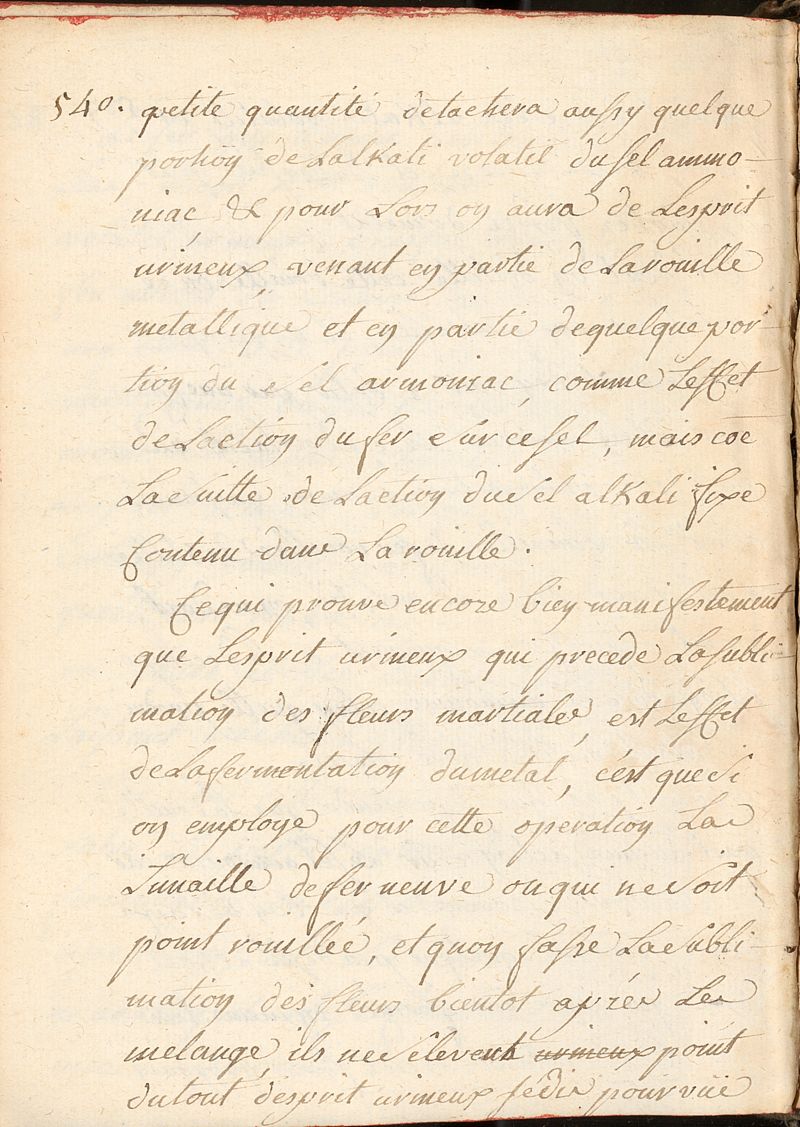 540. petite quantité detachera aussy quelque
portion de Lalkali volatil du sel ammo-
niac, & pour Lors on aura de Lesprit
urineux venant en partie de La rouille
metallique et en partie de quelque por-
tion du Sel armoniac, comme Leffet
de Laction du fer Sur ce sel, mais coe
La Suitte de Laction du Sel alkali fixe
Contenu dans La rouille.
Ce qui prouve encore bien manifestement
que Lesprit urineux qui precede La subli-
mation des fleurs martiales, est Leffet
de La fermentation du metal, c'est que Si
on employe pour cette operation La
Limaille de fer neuve ou qui ne Soit
point rouillée, et quon fasse La Subli-
mation des fleurs bientot aprés Le
melange, ils ne S'elevent urineux point
du tout d'esprit urineux pourvüe